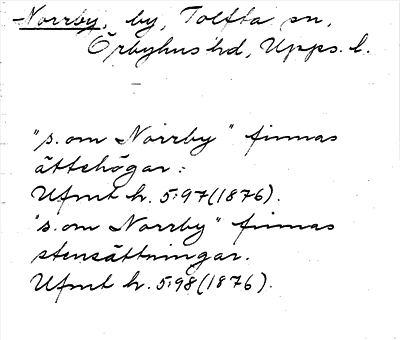 Norrby, by, Tolfta sn,
Örbyhus hd, Upps. l.
"s. om Norrby" finnas
ättehögar:
Ufmt h. 5:97 (1876).
"s. om Norrby" finnas
stensättningar.
Ufmt h. 5:98 (1876).